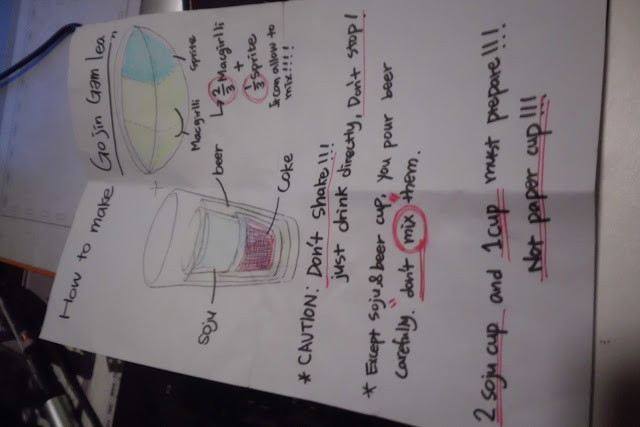 How to make Gojin Gam lea
Sprite
Macgirlli
↳ 2/3 Macgirlli
+
1/3 Sprite
& can allow to
mix!!!!
+
beer
Coke
Soju
* CAUTION: Don't shake!!!
just drink directly, Don't stop!
* Except soju & beer cup, you pour beer
carefully. don't mix them.
2 soju cup and 1 cup must prepare!!!
Not paper cup!!!